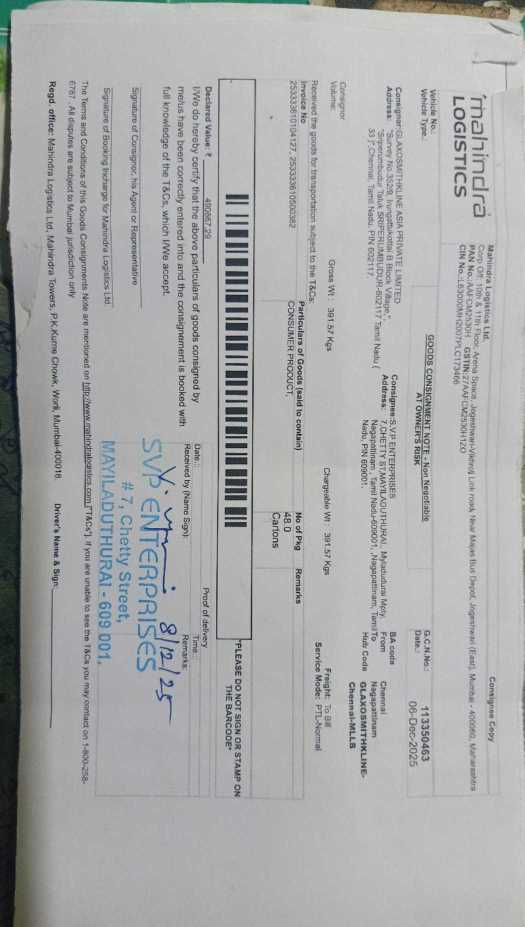 Consignee Copy
mahindra
LOGISTICS
Mahindra Logistics Ltd.
Corp Off: 10th & 11th Floor, Arena Space, Jogeshwari-Vikhroli Link road, Near Majas Bus Depot, Jogeshwari (East), Mumbai - 400060, Maharashtra
PAN No.:AAFCM2530H GSTIN:27AAFCM2530H1ZO
CIN No.:L63000MH2007PLC173466
GOODS CONSIGNMENT NOTE - Non Negotiable
AT OWNER'S RISK
Vehicle No.:
Vehicle Type.:
G.C.N.No.: 113350463
Date.: 06-Dec-2025
Consigner:GLAXOSMITHKLINE ASIA PRIVATE LIMITED
Address: "Survey No.352/9, Irungattukottai B Block Village,",
"Sriperumbudur Taluk SRIPERUMBUDUR-602117 Tamil Nadu (
33 )",Chennai, Tamil Nadu, PIN 602117,
Consignee:S.V.P ENTERPRISES
Address: 7,CHETTY ST,MAYILADUTHURAI, Myladudurai Mpty,
Nagapattinam , Tamil Nadu-609001, ,Nagapattinam, Tamil
Nadu, PIN 609001,
BA code
From Chennai
To Nagapattinam
Hub Code GLAXOSMITHKLINE-
Chennai-MLLB
Consignor
Volume:
Gross Wt : 391.57 Kgs
Chargeable Wt : 391.57 Kgs
Freight: To Bill
Service Mode: PTL-Normal
Received the goods for transportation subject to the T&Cs:
Invoice No
Particulars of Goods (said to contain)
No of Pkg
Remarks
253333610104127, 253333610500382
CONSUMER PRODUCT,
48.0
Cartons
"PLEASE DO NOT SIGN OR STAMP ON
THE BARCODE"
Declared Value: ₹ 490667.29
I/We do hereby certify that the above particulars of goods consigned by
me/us have been correctly entered into and the consignment is booked with
full knowledge of the T&Cs, which I/We accept.
Proof of delivery
Date.:
Time.:
Received by (Name Sign):
Remarks:
8/12/25
SVP ENTERPRISES
# 7, Chetty Street,
MAYILADUTHURAI - 609 001.
Signature of Consignor, his Agent or Representative
Signature of Booking Incharge for Mahindra Logistics Ltd.
The Terms and Conditions of this Goods Consignments Note are mentioned on http://www.mahindralogistics.com ("T&Cs"). If you are unable to see the T&Cs you may contact on 1-800-258-
6787 . All disputes are subject to Mumbai jurisdiction only
Regd. office: Mahindra Logistics Ltd, Mahindra Towers, P.K.Kurne Chowk, Worli, Mumbai-400018.
Driver's Name & Sign